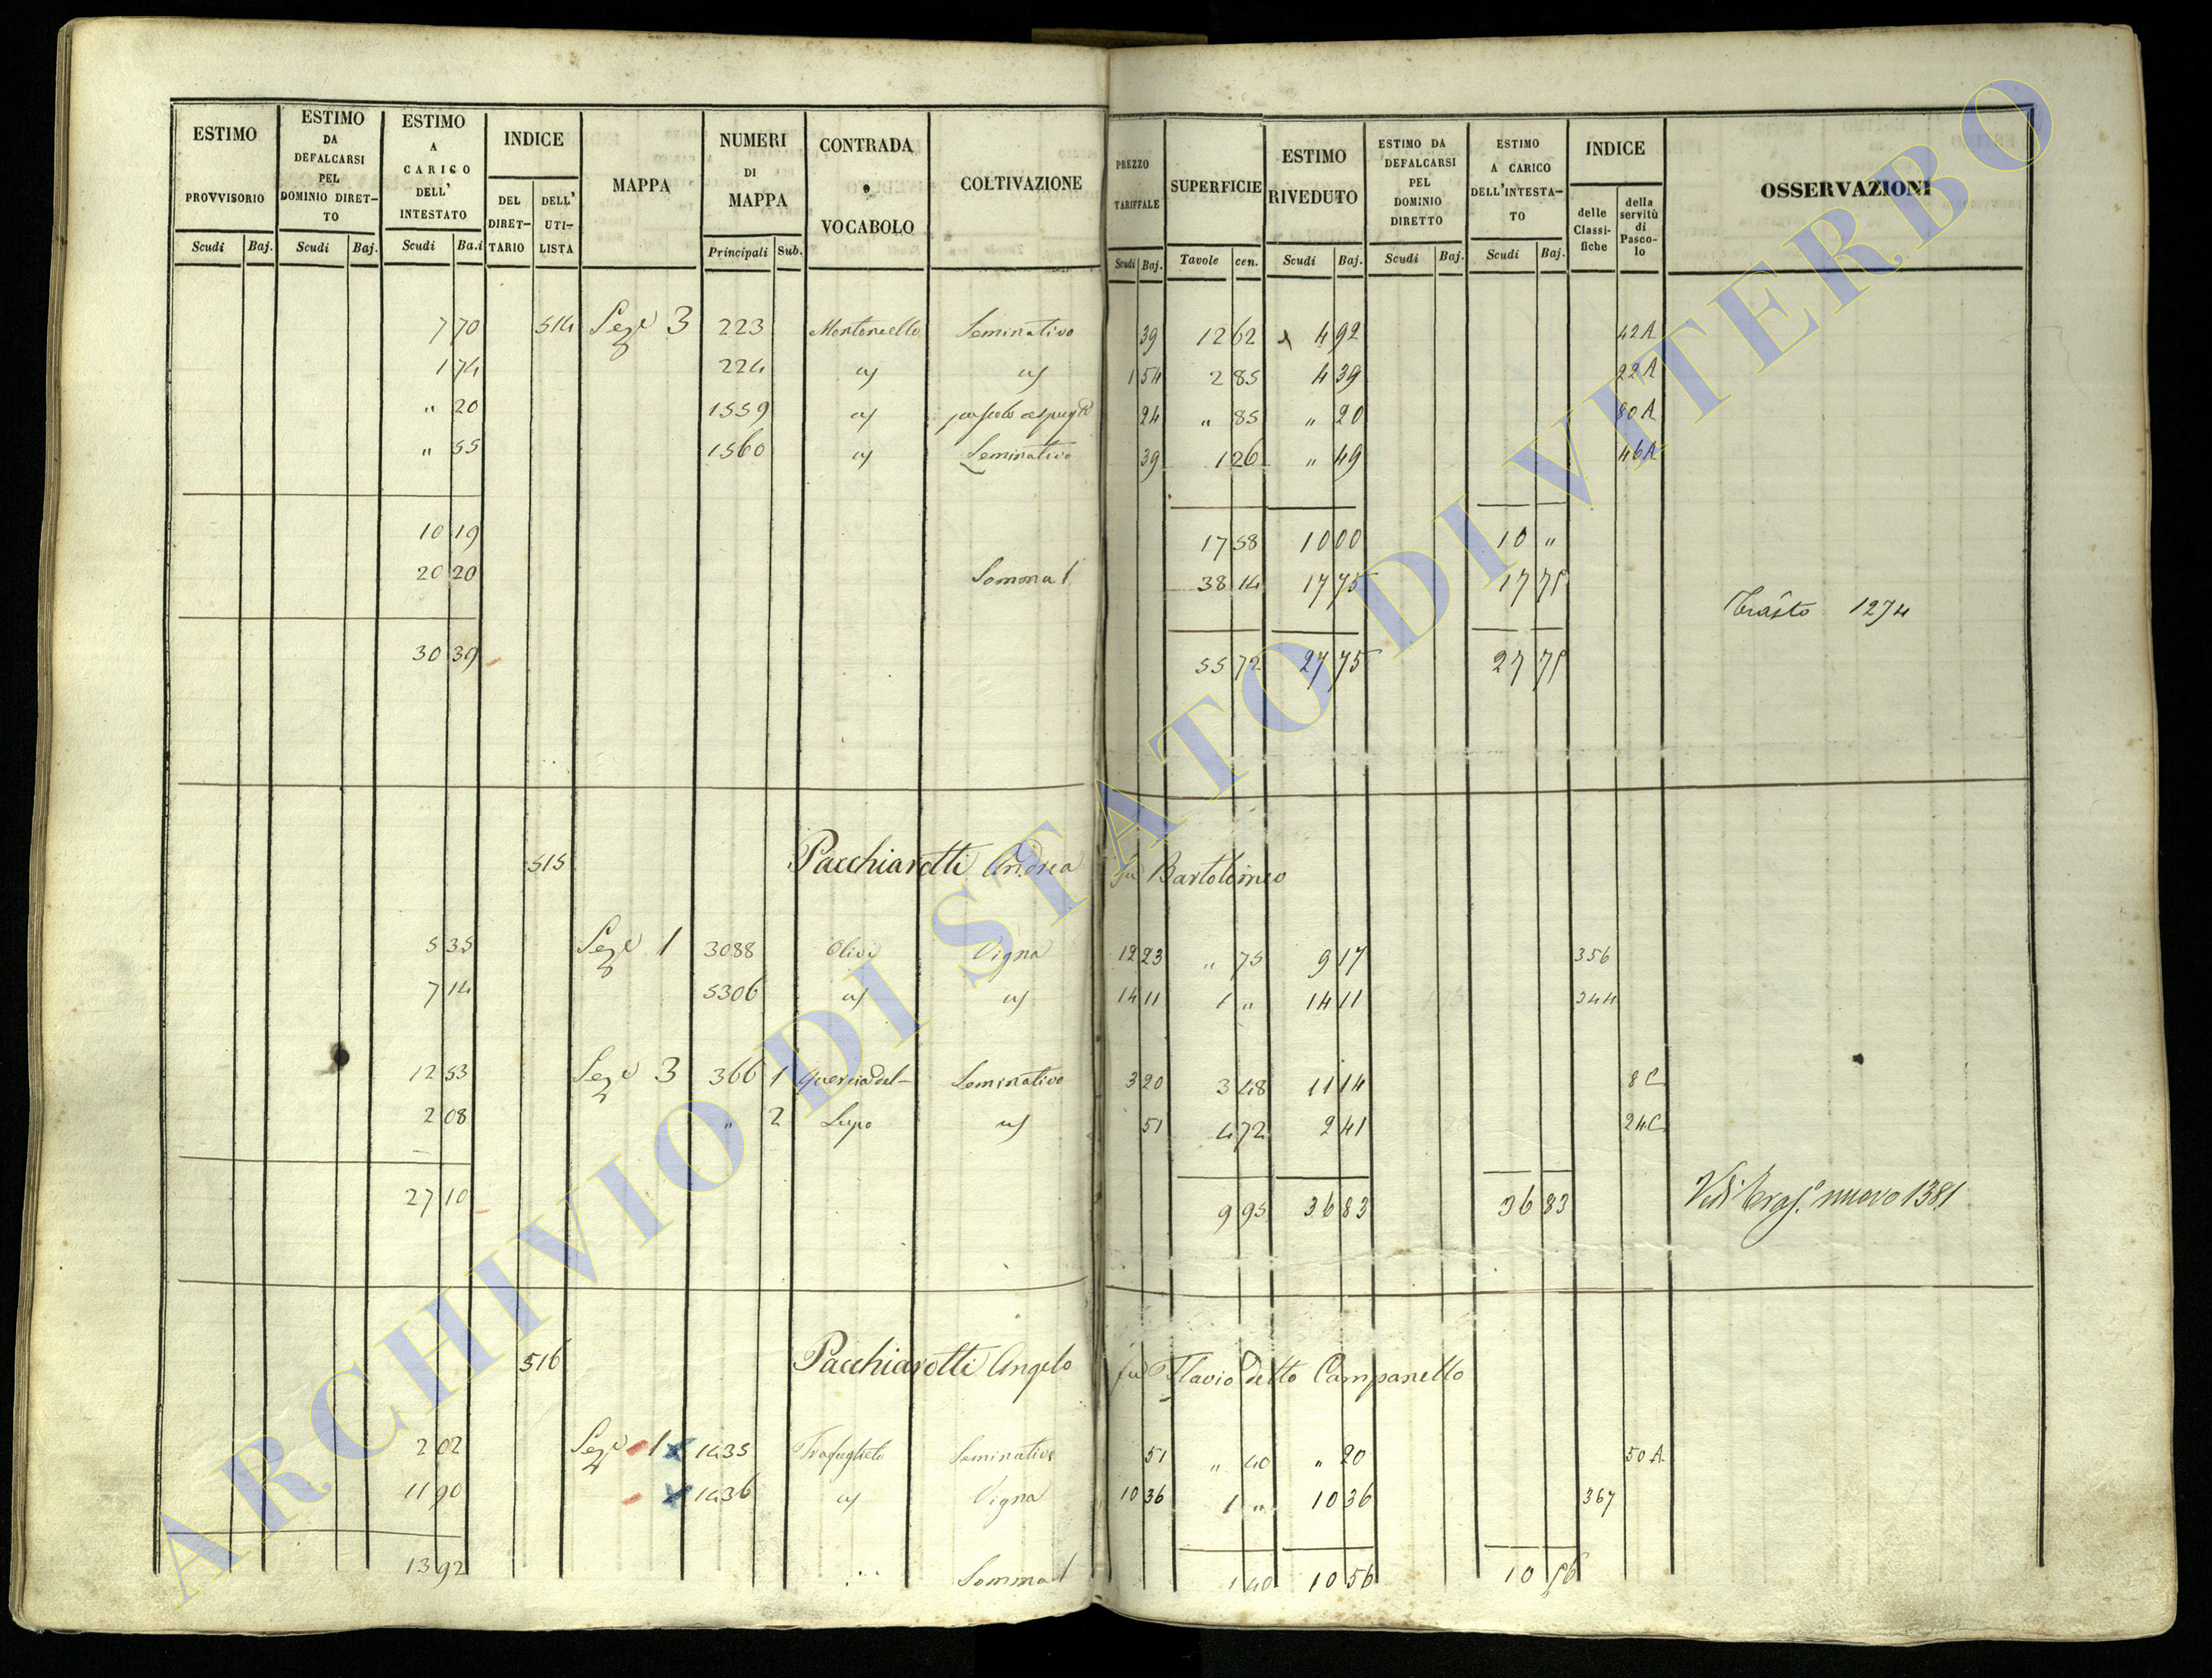 ESTIMO PROVVISORIO | ESTIMO DA DEFALCARSI PEL DOMINIO DIRETTO | ESTIMO A CARICO DELL' INTESTATO | INDICE | MAPPA | NUMERI DI MAPPA | CONTRADA o VOCABOLO | COLTIVAZIONE | PREZZO TARIFFALE | SUPERFICIE | ESTIMO RIVEDUTO | ESTIMO DA DEFALCARSI PEL DOMINIO DIRETTO | ESTIMO A CARICO DELL'INTESTATO | INDICE | OSSERVAZIONI
DEL DIRETTARIO | DELL' UTILISTA | delle Classifiche | della servitù di Pascolo
Scudi | Baj. | Scudi | Baj. | Scudi | Ba.i | Principali | Sub. | Scudi | Baj. | Tavole | cen. | Scudi | Baj. | Scudi | Baj. | Scudi | Baj.
7 70 | 514 | Seze 3 | 223 | Montoncello | Seminativo | 39 | 12 62 | 4 92 | 42A
1 74 | 224 | | | 1 54 | 2 85 | 4 39 | 22A
" 20 | 1559 | | pascolo | 24 | " 85 | " 20 | 80A
" 55 | 1560 | | Seminativo | 39 | 1 26 | " 49 | 46A
10 19 | 17 58 | 10 00 | 10 "
20 20 | Somma 1 | 38 14 | 17 75 | 17 75
Trasto 1274
30 39 | 55 72 | 27 75 | 27 75
515 | Pacchiarotti Andrea fu Bartolomeo
5 35 | Seze 1 | 3088 | Olivi | Vigna | 12 23 | " 75 | 9 17 | 356
7 14 | 5306 | | | 14 11 | 1 " | 14 11 | 344
12 53 | Seze 3 | 366 1 | Quercia del- | Seminativo | 3 20 | 3 48 | 11 14 | 8C
2 08 | " 2 | Lupo | | 51 | 4 72 | 2 41 | 24C
27 10 | 9 95 | 36 83 | 36 83 | Vedi Trasp. nuovo 1381
516 | Pacchiarotti Angelo fu Flavio detto Campanello
2 02 | Seze 1 | 1435 | | Seminativo | 51 | " 40 | " 20 | 50A
11 90 | 1436 | | Vigna | 10 36 | 1 " | 10 36 | 367
13 92 | Somma 1 | 1 40 | 10 56 | 10 56
ARCHIVIO DI STATO DI VITERBO